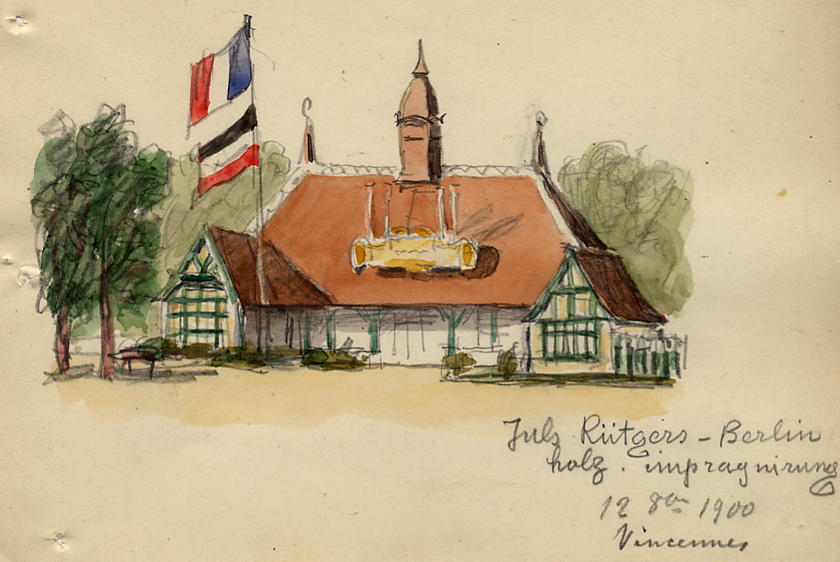 Juls Rütgers - Berlin
holz. imprägnirung
12 8bre 1900
Vincennes